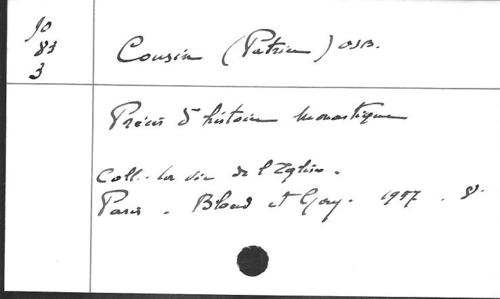 Jo
83
3
Cousin (Patrice) OSB.
Précis d'histoire monastique
Coll. La vie de l'Eglise.
Paris. Bloud et Gay. 1957. 8°